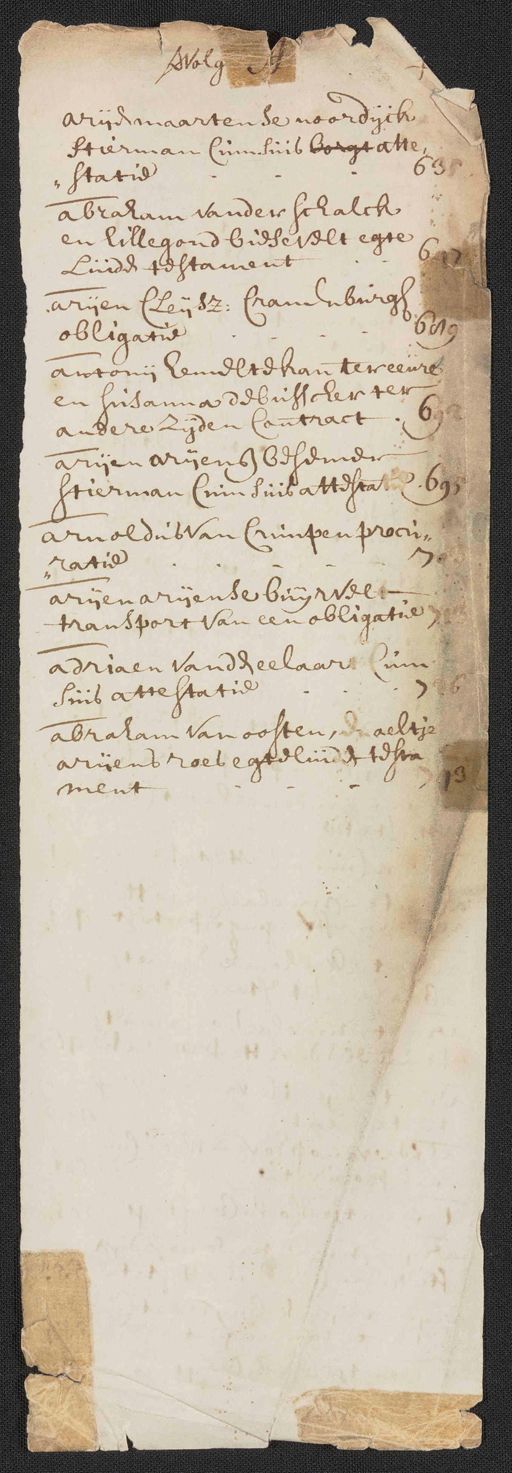 Volg A
arijen maartense noordijck
stierman Cum suis borgt atte„
„statie 635
abraham vander schalck
en hillegond biesevelt egte
Luiden testament
arijen Cleijsz: Cranenburgh
obligatie 689
antonij hendeltekan ter eenre
en susanna debusscker ter
andere Zijden Contract
arijen arijensz besemer
stierman Cum suis attestatie 695
arnoldus van Crimpen procu„
„ratie
arijen arijense buijrvelt
transport van een obligatie
adriaen vandeelaar Cum
suis attestatie
abraham van oosten, en aeltje
arijens roes egte luiden testa
ment 713